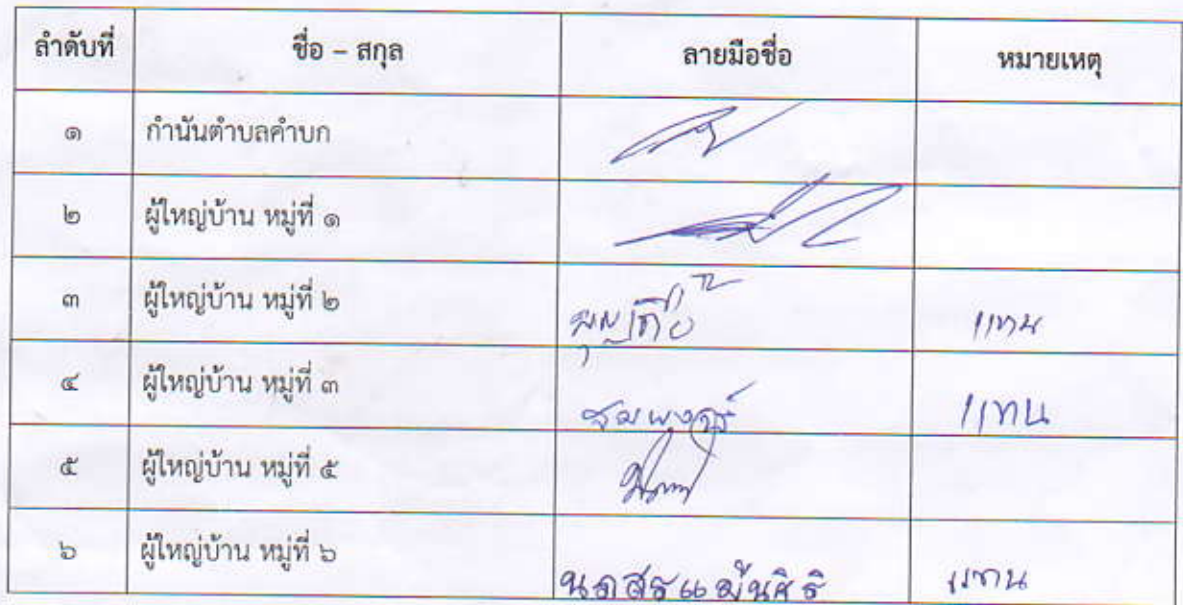 ลำดับที่ ชื่อ – สกุล ลายมือชื่อ หมายเหตุ
๑ กำนันตำบลคำบก
๒ ผู้ใหญ่บ้าน หมู่ที่ ๑
๓ ผู้ใหญ่บ้าน หมู่ที่ ๒ แทน
๔ ผู้ใหญ่บ้าน หมู่ที่ ๓ สมพงษ์ แทน
๕ ผู้ใหญ่บ้าน หมู่ที่ ๕
๖ ผู้ใหญ่บ้าน หมู่ที่ ๖ แทน